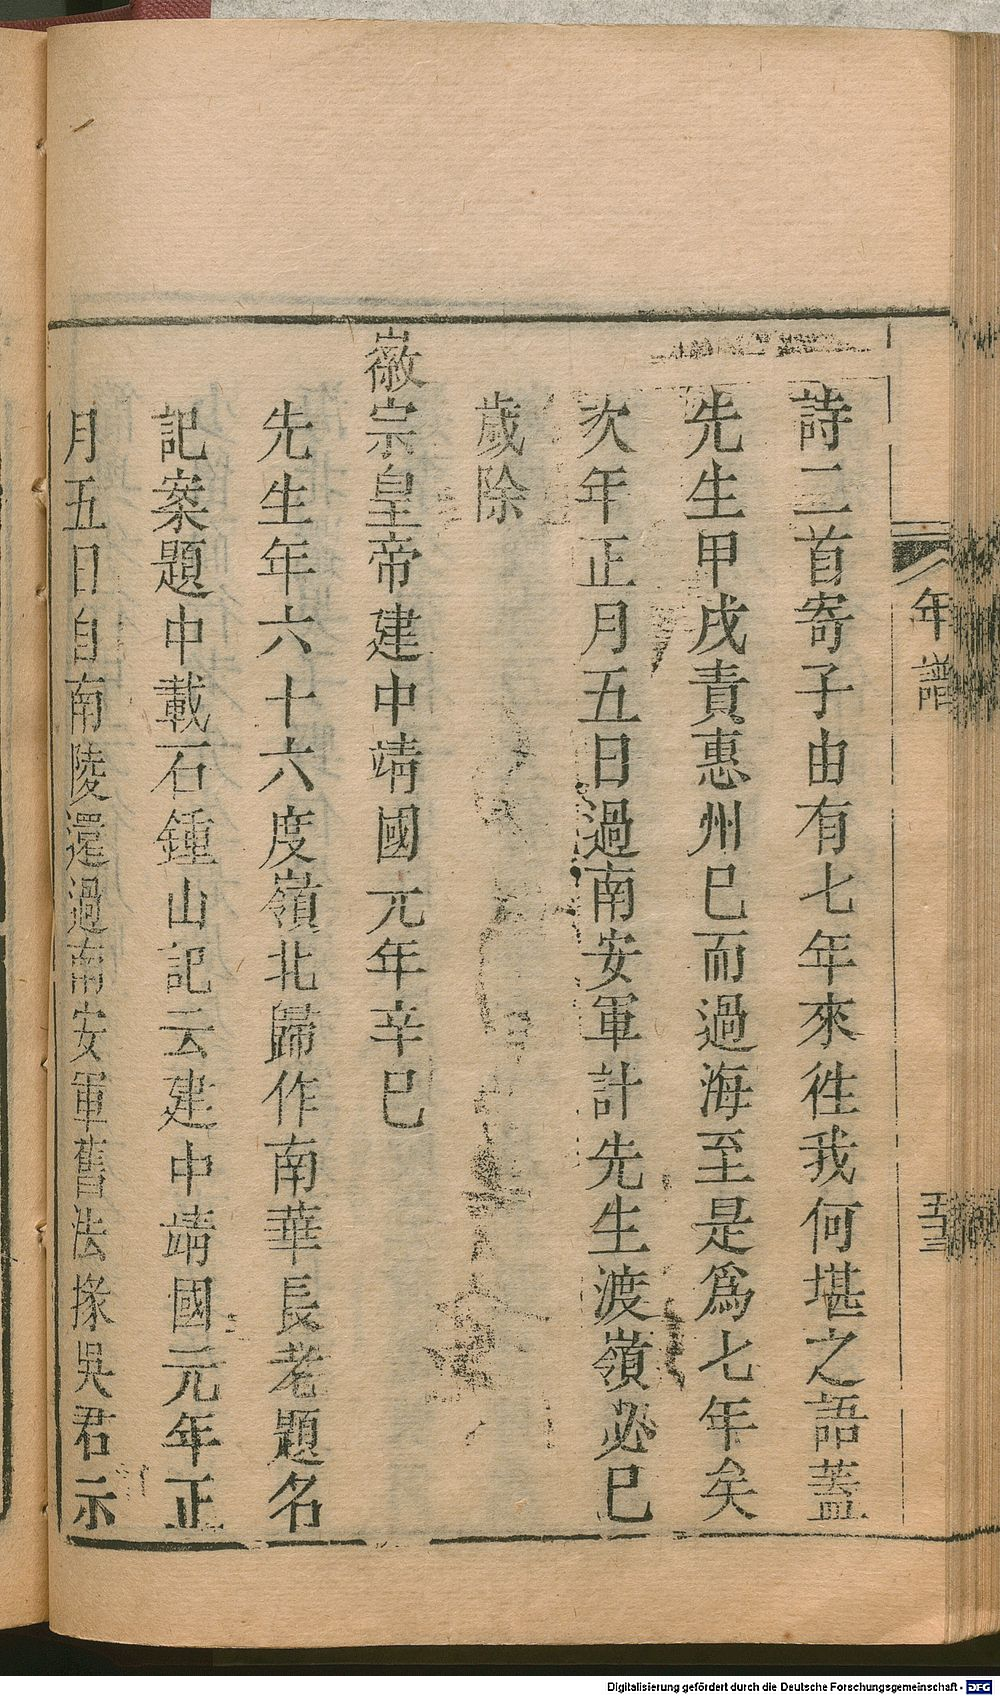 詩二首寄子由有七年來徃我何堪之語蓋
先生甲戌責惠州已而過海至是爲七年矣
次年正月五日過南安軍計先生渡嶺必巳
歲除
徽宗皇帝建中靖國元年辛巳
先生年六十六度嶺北歸作南華長老題名
記案題中載石鍾山記云建中靖國元年正
月五日自南陵還過南安軍舊法掾吳君示
年譜
五三
Digitalisierung gefördert durch die Deutsche Forschungsgemeinschaft - DFG